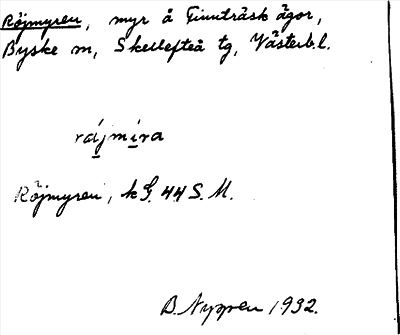 Röjmyren, myr å Finnträsk ägor,
Byske sn, Skellefteå tg, Västerb. l.
rájmira
Röjmyren, k G. 44 S. M.
B. Nygren 1932.